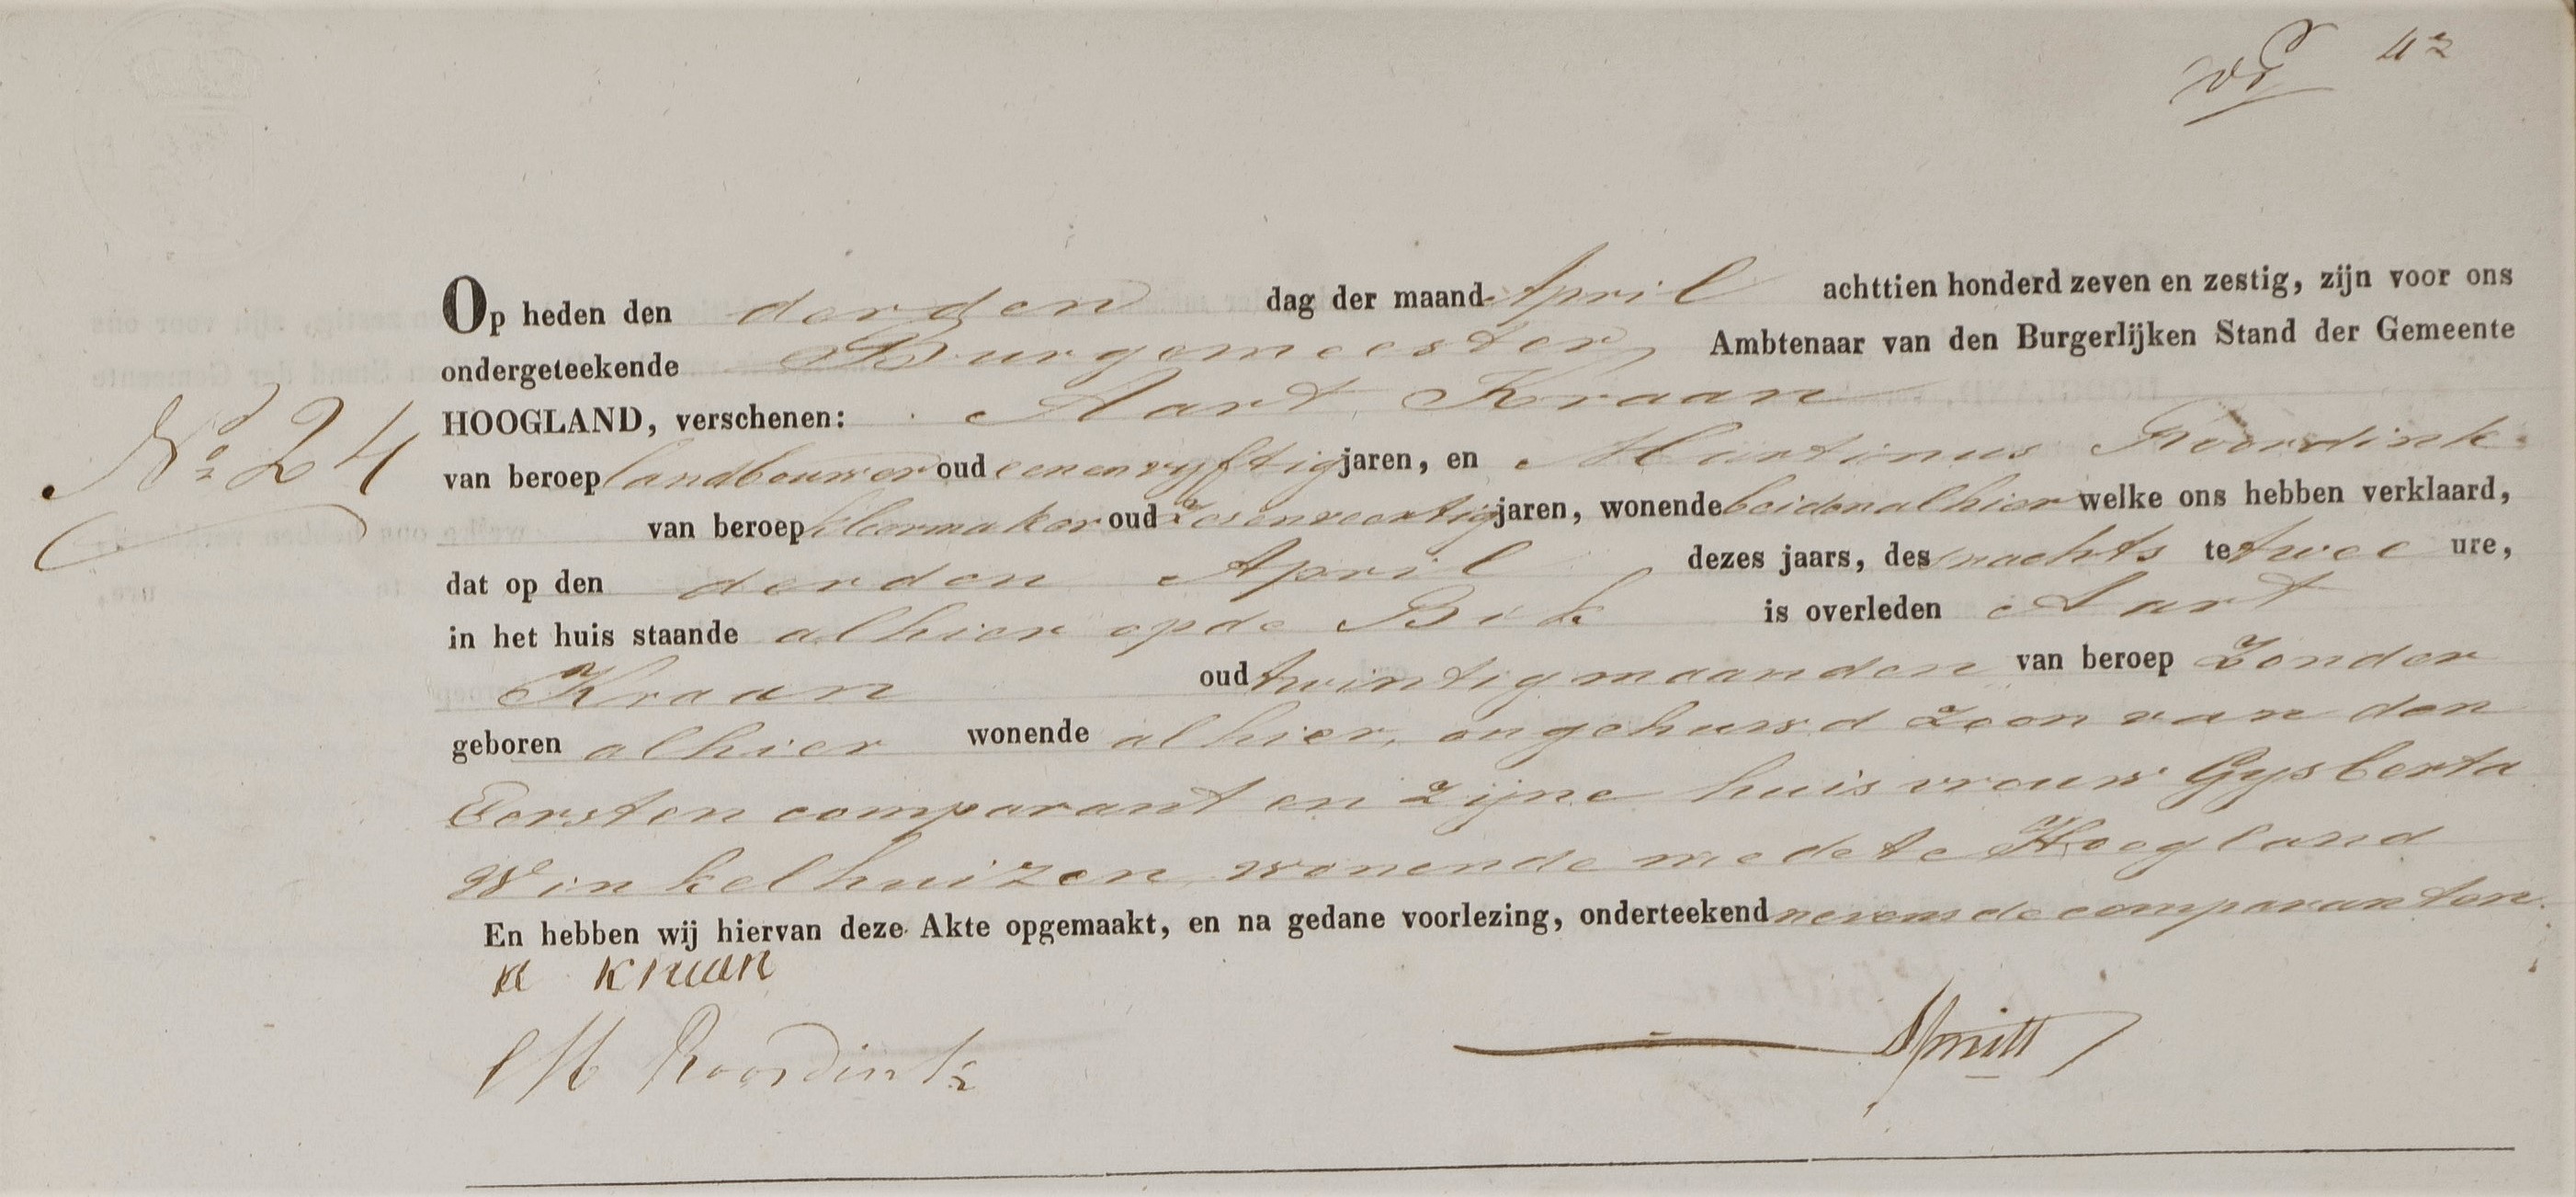 42
Op heden den derden dag der maand April achttien honderd zeven en zestig, zijn voor ons
ondergeteekende Burgemeester, Ambtenaar van den Burgerlijken Stand der Gemeente
No 24
HOOGLAND, verschenen: Aart Kraan
van beroep landbouwer oud eenenvyftig jaren, en Martinus Roordink
van beroep kleermaker oud zesenveertig jaren, wonende beiden alhier welke ons hebben verklaard,
dat op den derden April dezes jaars, des nachts te twee ure,
in het huis staande alhier op de Bik is overleden Aart
Kraan oud twintig maanden van beroep Zonder
geboren alhier wonende alhier, ongehuwd zoon van den
Eersten comparant en zijne huisvrouw Gysberta
Winkelhuizen, wonende mede te Hoogland
En hebben wij hiervan deze Akte opgemaakt, en na gedane voorlezing, onderteekend nevens de comparanten.
a kraan
M Roordink